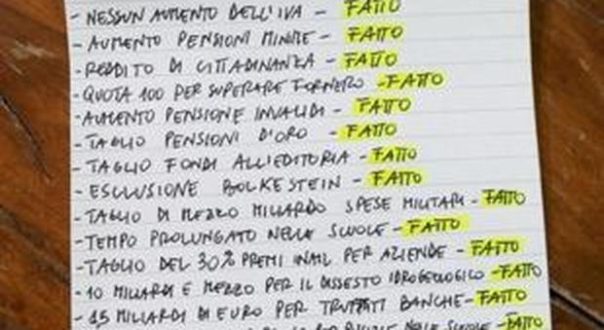 - NESSUN AUMENTO DELL'IVA - FATTO
- AUMENTO PENSIONI MINIME - FATTO
- REDDITO DI CITTADINANZA - FATTO
- QUOTA 100 PER SUPERARE FORNERO - FATTO
- AUMENTO PENSIONE INVALIDI - FATTO
- TAGLIO PENSIONI D'ORO - FATTO
- TAGLIO FONDI ALL'EDITORIA - FATTO
- ESCLUSIONE BOLKESTEIN - FATTO
- TAGLIO DI MEZZO MILIARDO SPESE MILITARI - FATTO
- TEMPO PROLUNGATO NELLE SCUOLE - FATTO
- TAGLIO DEL 30% PREMI INAIL PER AZIENDE - FATTO
- 10 MILIARDI E MEZZO PER IL DISSESTO IDROGEOLOGICO - FATTO
- 1,5 MILIARDI DI EURO PER TRUFFATI BANCHE - FATTO
NELLE SCUOLE - FATTO